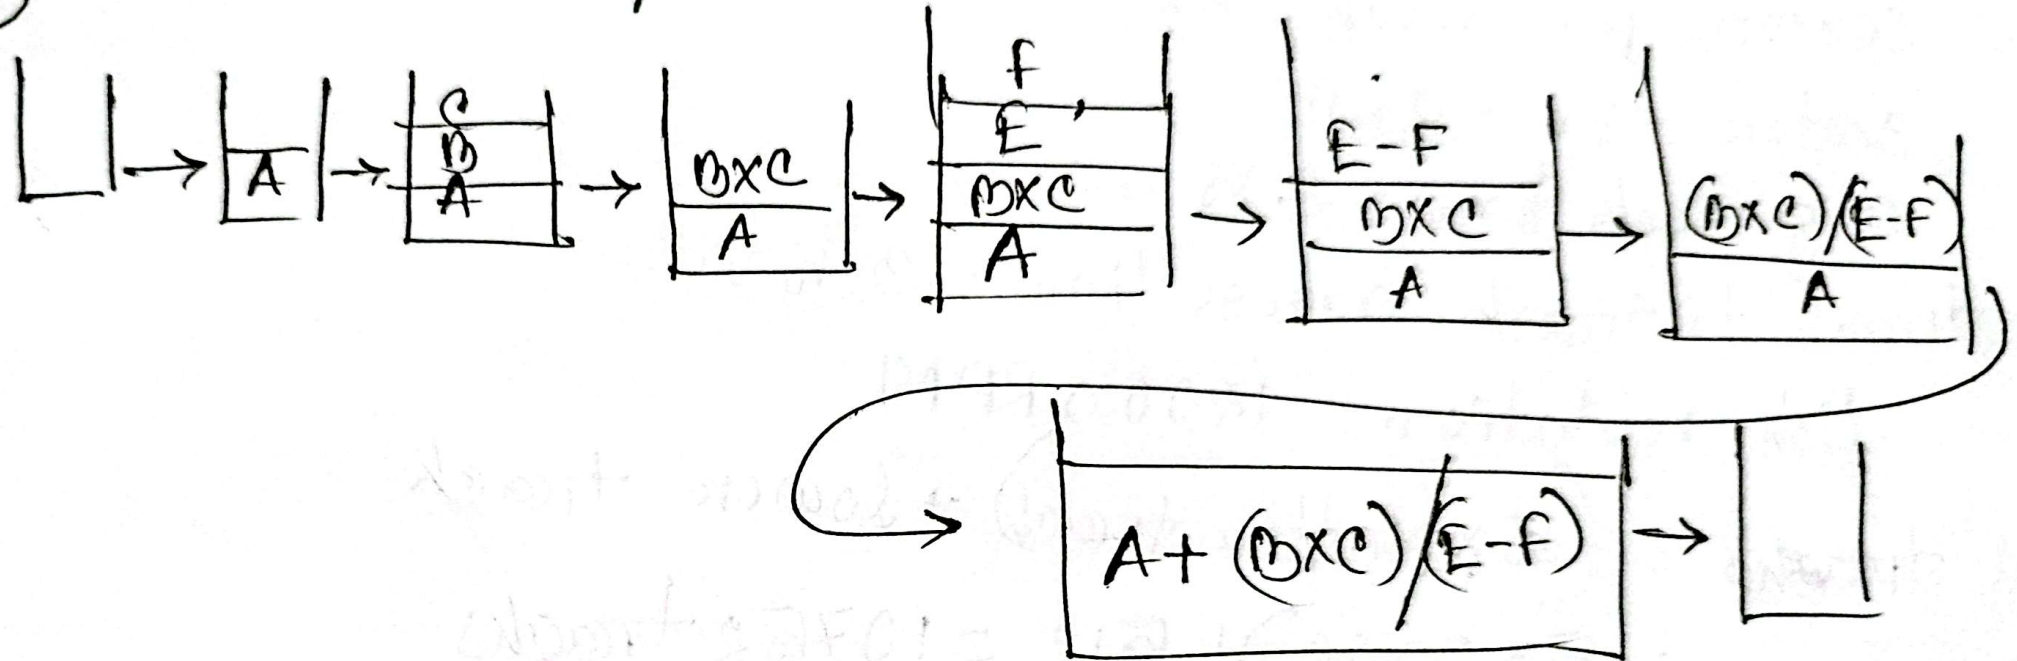 A
C
B
A
B×C
A
F
E
B×C
A
E-F
B×C
A
(B×C)/(E-F)
A
A+ (B×C)/(E-F)